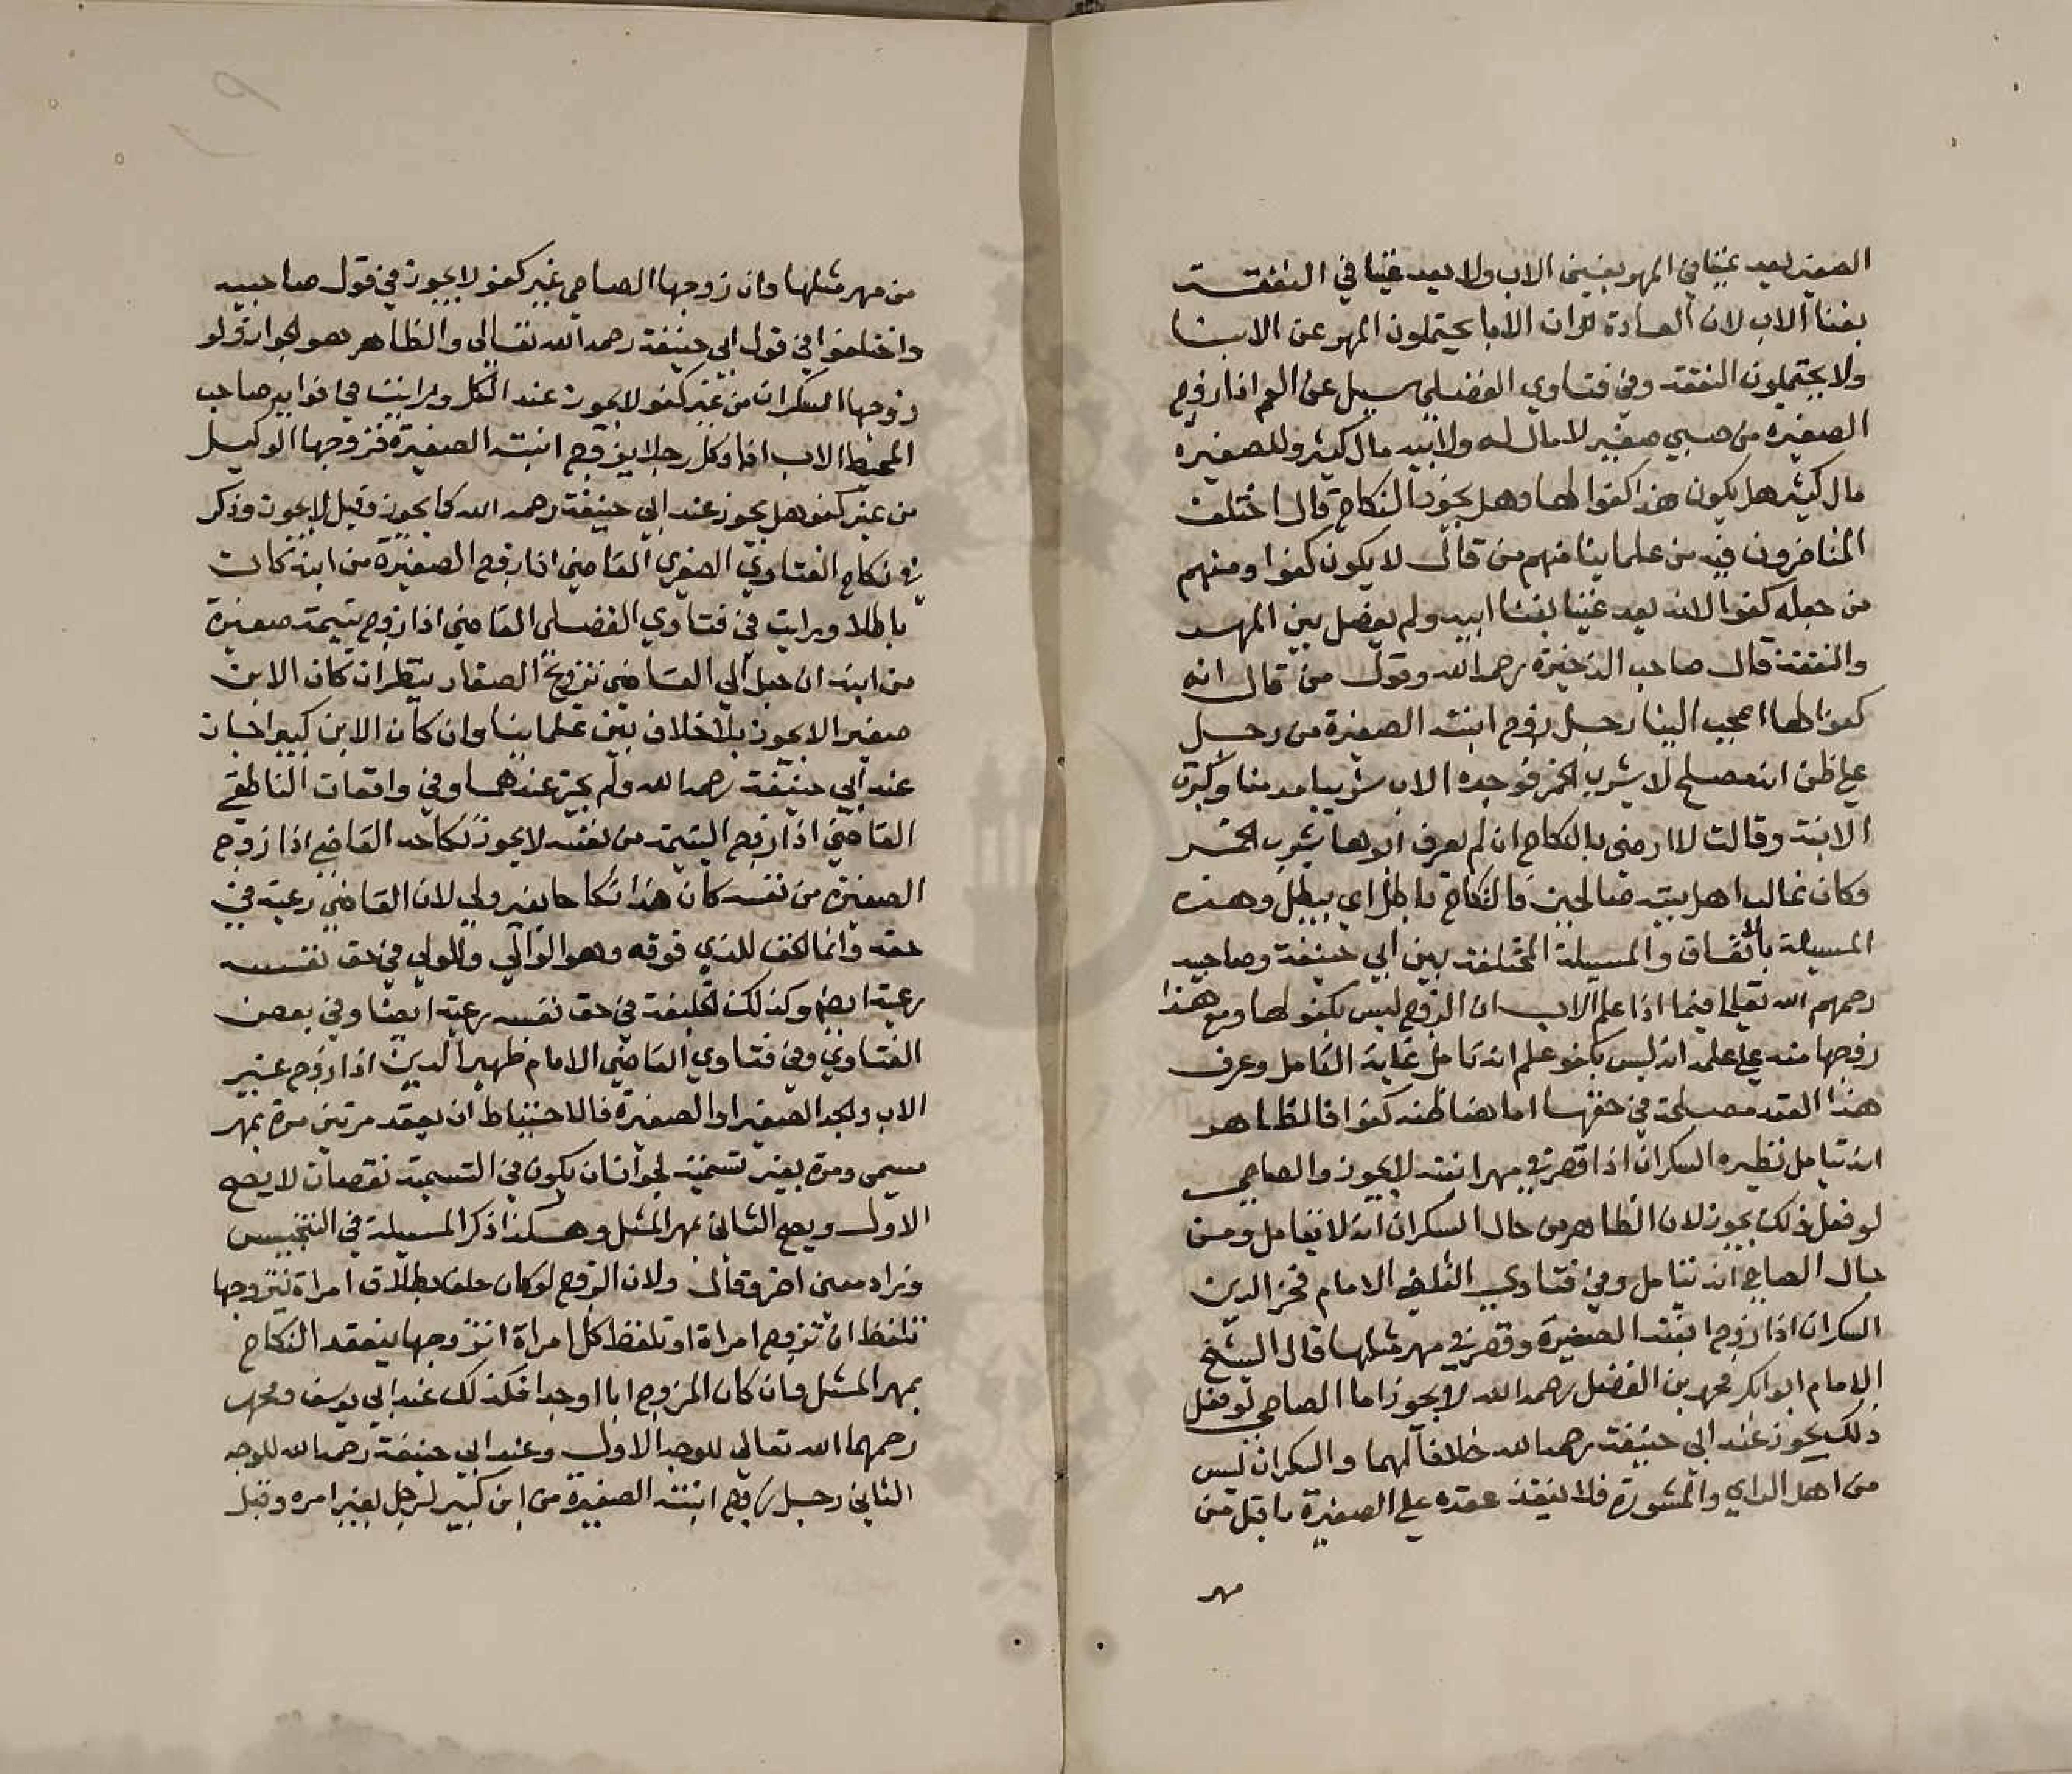 الصغير يعد غنيا في المهر بغنى الاب ولا يعد غنيا في النفقة
بغنا الاب لان العادة ان الابا يحتملون المهر عن الابنا
ولا يحتملون النفقة وفي فتاوي الفضلي سيل عن العم اذا زوج
الصغيرة من صبي صغير لا مال له ولابيه مال كثير وللصغيرة
مال كثير هل يكون هذا كفوا لها وهل يجوز النكاح قال اختلف
المتاخرون فيه من علماينا منهم من قال لا يكون كفوا ومنهم
من جعله كفوا لانه يعد غنيا بغنا ابيه ولم يفصل بين المهر
والنفقة قال صاحب الذخيرة رحمه الله وقول من قال انه
كفوا لها اعجب الينا رجل زوج ابنته الصغيرة من رجل
علي ظن انه مصلح لا يشرب الخمر فوجده الاب شريبا مدمنا وكبرت
الابنة وقالت لا ارضى بالنكاح ان لم يعرف ابوها يشرب الخمر
وكان غالب اهل بيته صالحين فالنكاح باطل اي يبطل وهذه
المسيلة بالاتفاق والمسيلة المختلفة بين ابي حنيفة وصاحبيه
رحمهم الله تعالى فيما اذا علم الاب ان الزوج ليس بكفو لها ومع هذا
زوجها منه علي علمه انه ليس بكفو علم انه تامل غاية التامل وعرف
هذا العقد مصلحة في حقها اما هنا ظنه كفوا فالظاهر
انه تيامل نظيره السكران اذا قصر في مهر ابنته لا يجوز والصاحي
لو فعل ذلك يجوز لان الظاهر من حال السكران انه لا يتامل ومن
حال الصاحي انه يتامل وفي فتاوي القاضي الامام فخر الدين
السكران اذا زوج ابنته الصغيرة وقصر في مهر مثلها قال الشيخ
الامام ابوابكر محمد بن الفضل رحمه الله لا يجوز اما الصاحي لو فعل
ذلك يجوز عند ابي حنيفة رحمه الله خلافا لهما والسكران ليس
من اهل الراي والمشورة فلا ينفذ عقده علي الصغيرة باقل من
مهر
من مهر مثلها وان زوجها الصاحي غير كفو لا يجوز في قول صاحبيه
واختلفوا في قول ابي حنيفة رحمه الله تعالى والظاهر هو الجواز ولو
زوجها السكران من غير كفو لا يجوز عند الكل ورايت في فوايد صاحب
المحيط الاب اذا وكل رجلا يزوج ابنته الصغيرة فزوجها الوكيل
من غير كفو هل يجوز عند ابي حنيفة رحمه الله كا يجوز وقيل لا يجوز وذكر
في نكاح الفتاوي الصغرى القاضي اذا زوج الصغيرة من ابنه كان
باطلا ورايت في فتاوي الفضلي القاضي اذا زوج يتيمة صغيرة
من ابنه ان جعل الي القاضي تزويج الصغار ينظر ان كان الابن
صغيرا لا يجوز بلا خلاف بين علماينا وان كان الابن كبيرا جاز
عند ابي حنيفة رحمه الله ولم يجز عندهما وفي واقعات الناطفي
القاضي اذا زوج اليتيمة من نفسه لا يجوز نكاحه القاضي اذا زوج
الصغيرة من نفسه كان هذا نكاحا بغير ولي لان القاضي رعية في
حقه وانما الحق للذي فوقه وهو الوالي والوالي في حق نفسه
رعية ايضا وكذلك الخليفة في حق نفسه رعية ايضا وفي بعض
الفتاوي وفي فتاوي القاضي الامام ظهير الدين اذا زوج غير
الاب والجد الصغير او الصغيرة فالاحتياط ان يعقد مرتين مرة بمهر
مسمى ومرة بغير تسمية لجوازان يكون في التسمية نقصان لا يصح
الاول ويصح الثاني بمهر المثل وهكذا ذكر المسيلة في التجنيس
وزاد معنى اخر وقال ولان الزوج لو كان حلف بطلاق امراة يتزوجها
تلفظ ان تزوج امراة او تلفظ كل امراة اتزوجها ينعقد النكاح
بمهر المثل وان كان المزوج ابا او جدا فكذلك عند ابي يوسف ومحمد
رحمهما الله تعالى للوجه الاول وعند ابي حنيفة رحمه الله للوجه
الثاني رجل زوج ابنته الصغيرة من ابن كبير لرجل بغير امره وقبل